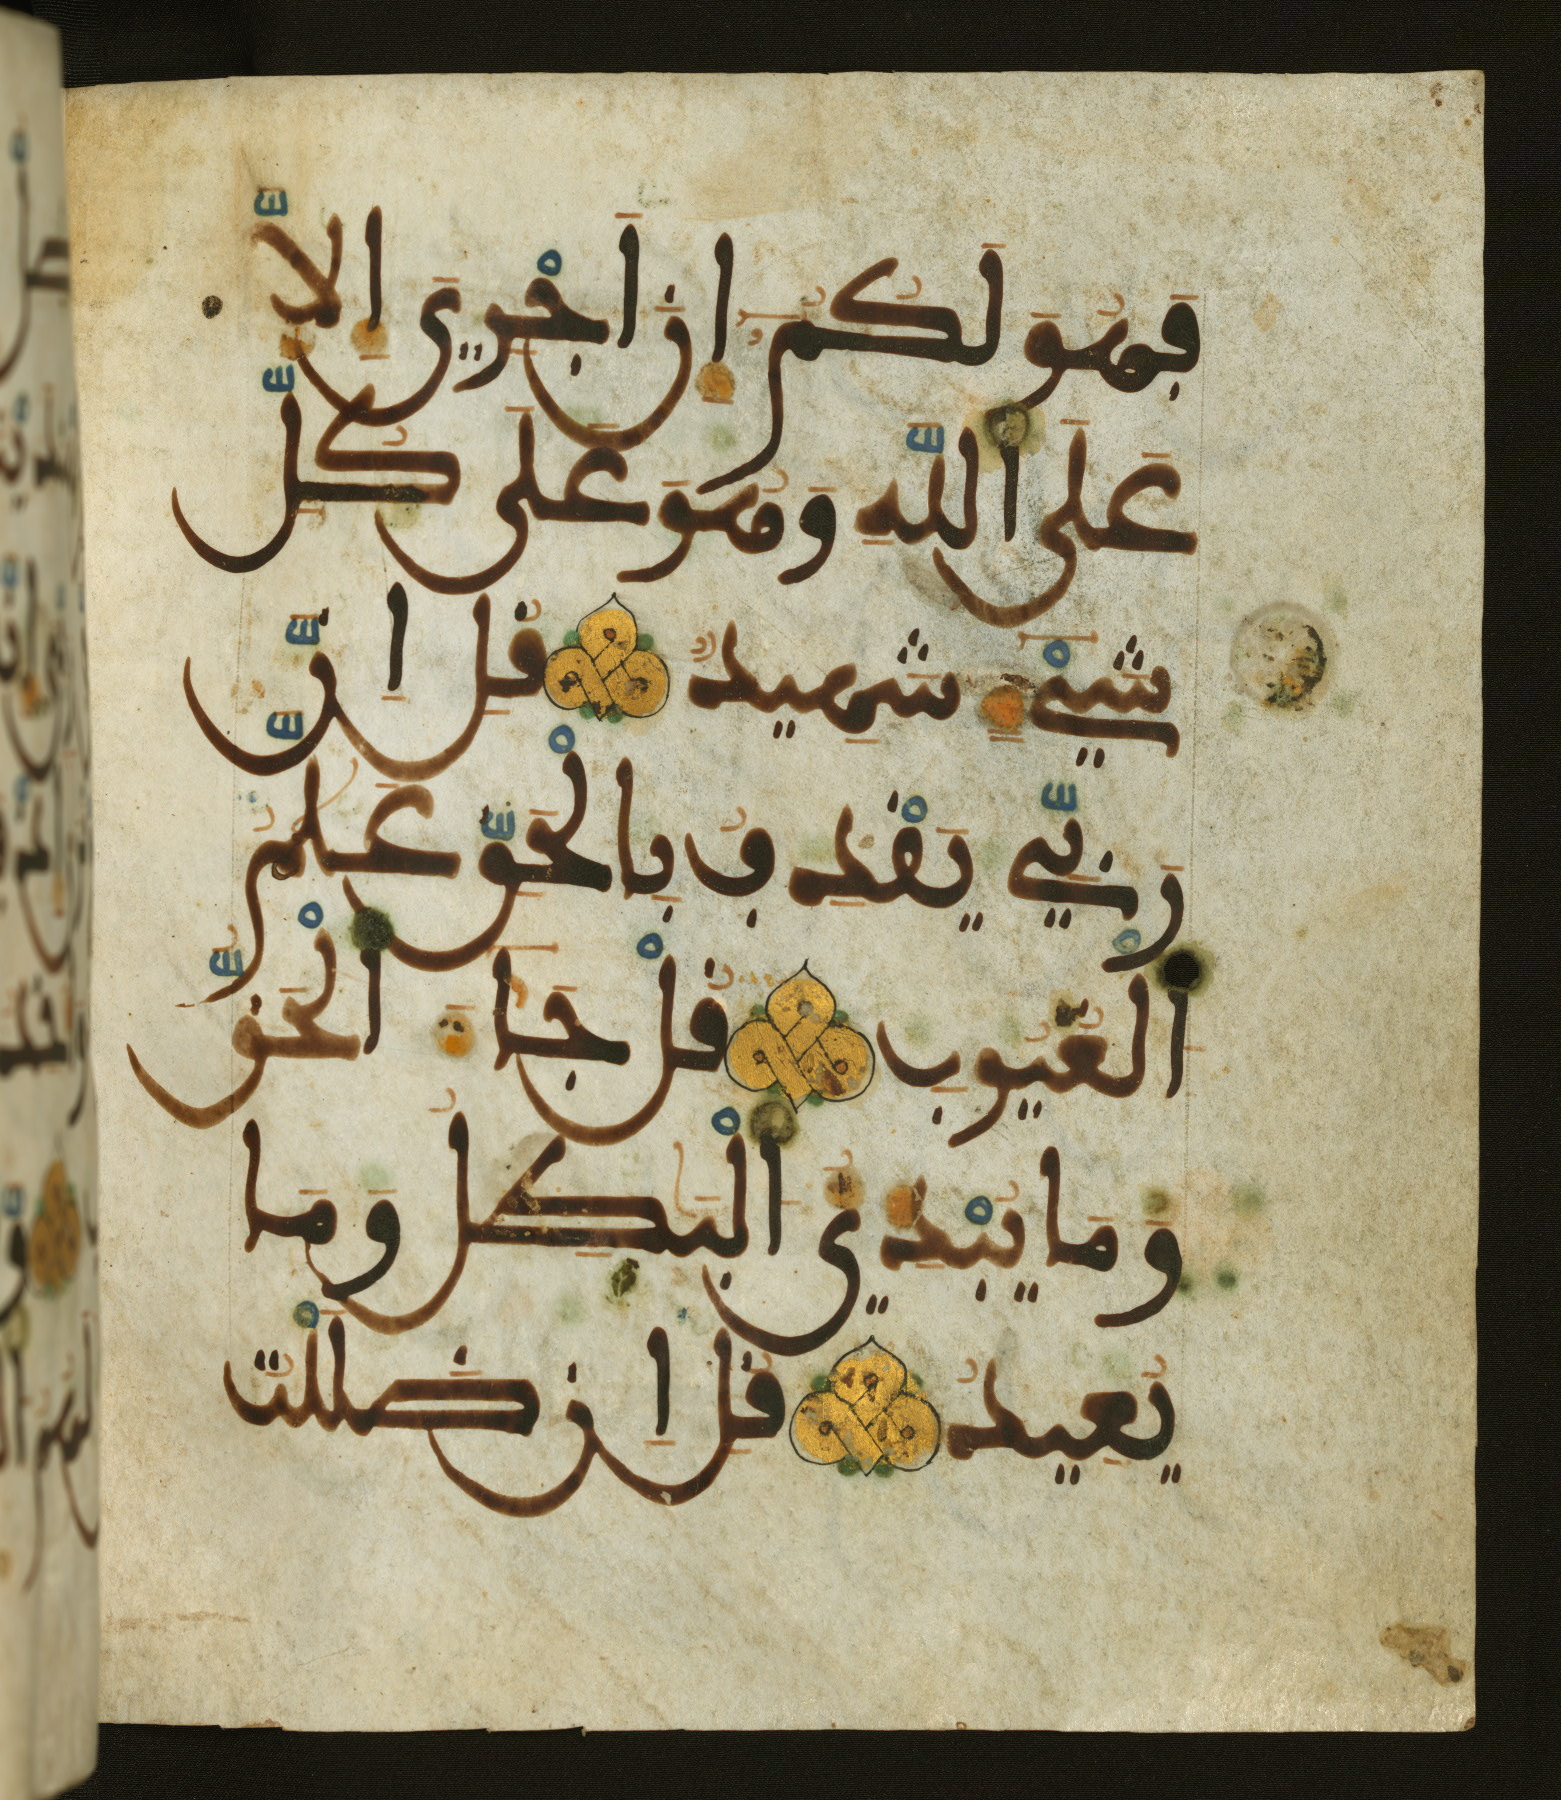 فَهُوَ لَكُمُ إِنَ اَجْرِيَ إِلَّا
عَلَى اَللَّهِ وَهُوَ عَلَى كُلِّ
شَيْءٍ شَهِيدٌ قُلِ اِنَّ
رَبِّي يَقْذِفُ بِالْحَقِّ عَلَّمُ
اَلْغُيُوبِ قُلْ جَاءَ اَلْحَقُّ
وَمَا يُبْدِئُ اَلْبَٰطِلُ وَمَا
يُعِيدُ قُلِ اِن ضَلَلْتُ